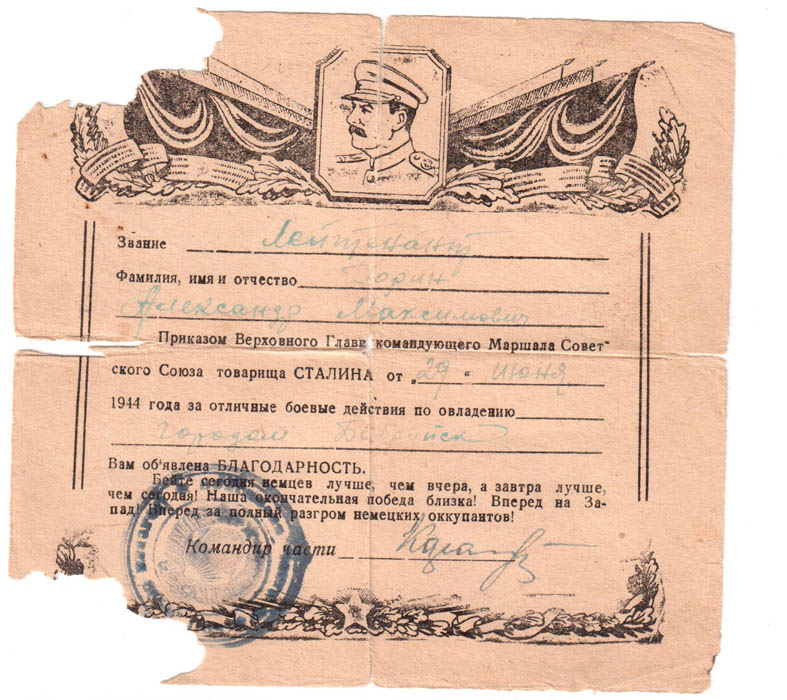 Звание Лейтенант
Фамилия, имя и отчество Горин
Александр Максимович
Приказом Верховного Главнокомандующего Маршала Совет-
ского Союза товарища СТАЛИНА от „29" июня
1944 года за отличные боевые действия по овладению
городом Бобруйск
Вам об'явлена БЛАГОДАРНОСТЬ.
Бейте сегодня немцев лучше, чем вчера, а завтра лучше,
чем сегодня! Наша окончательная победа близка! Вперед на За-
пад! Вперед за полный разгром немецких оккупантов!
Командир части